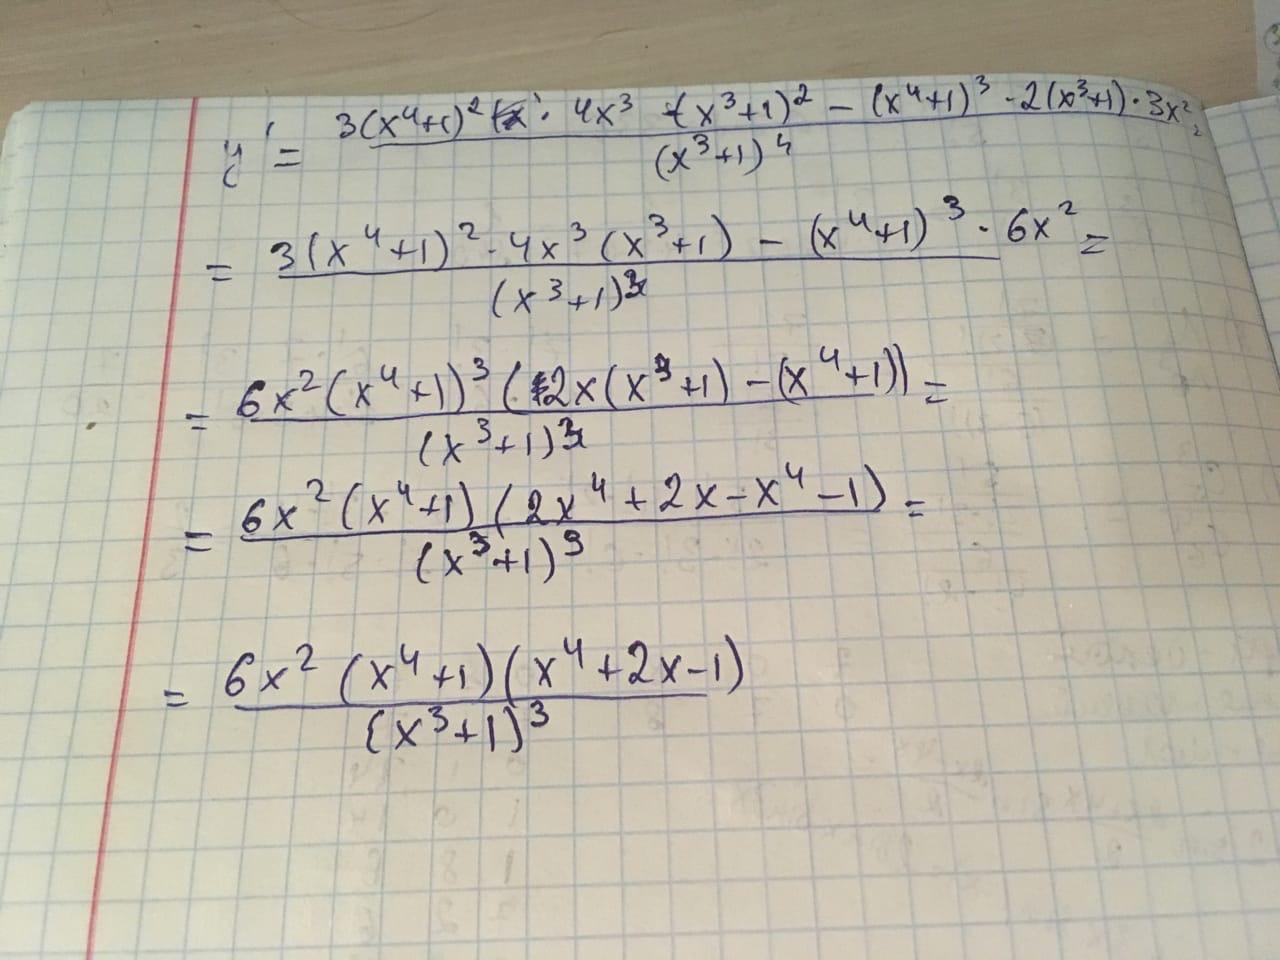 y' = 3(x⁴+1)² · 4x³ · (x³+1)² − (x⁴+1)³ · 2(x³+1) · 3x² / (x³+1)⁴ =
= 3(x⁴+1)² · 4x³ (x³+1) − (x⁴+1)³ · 6x² / (x³+1)³ =
= 6x² (x⁴+1)³ (2x(x³+1) − (x⁴+1)) / (x³+1)³ =
= 6x² (x⁴+1) (2x⁴ + 2x − x⁴ − 1) / (x³+1)³ =
= 6x² (x⁴+1) (x⁴ + 2x − 1) / (x³+1)³